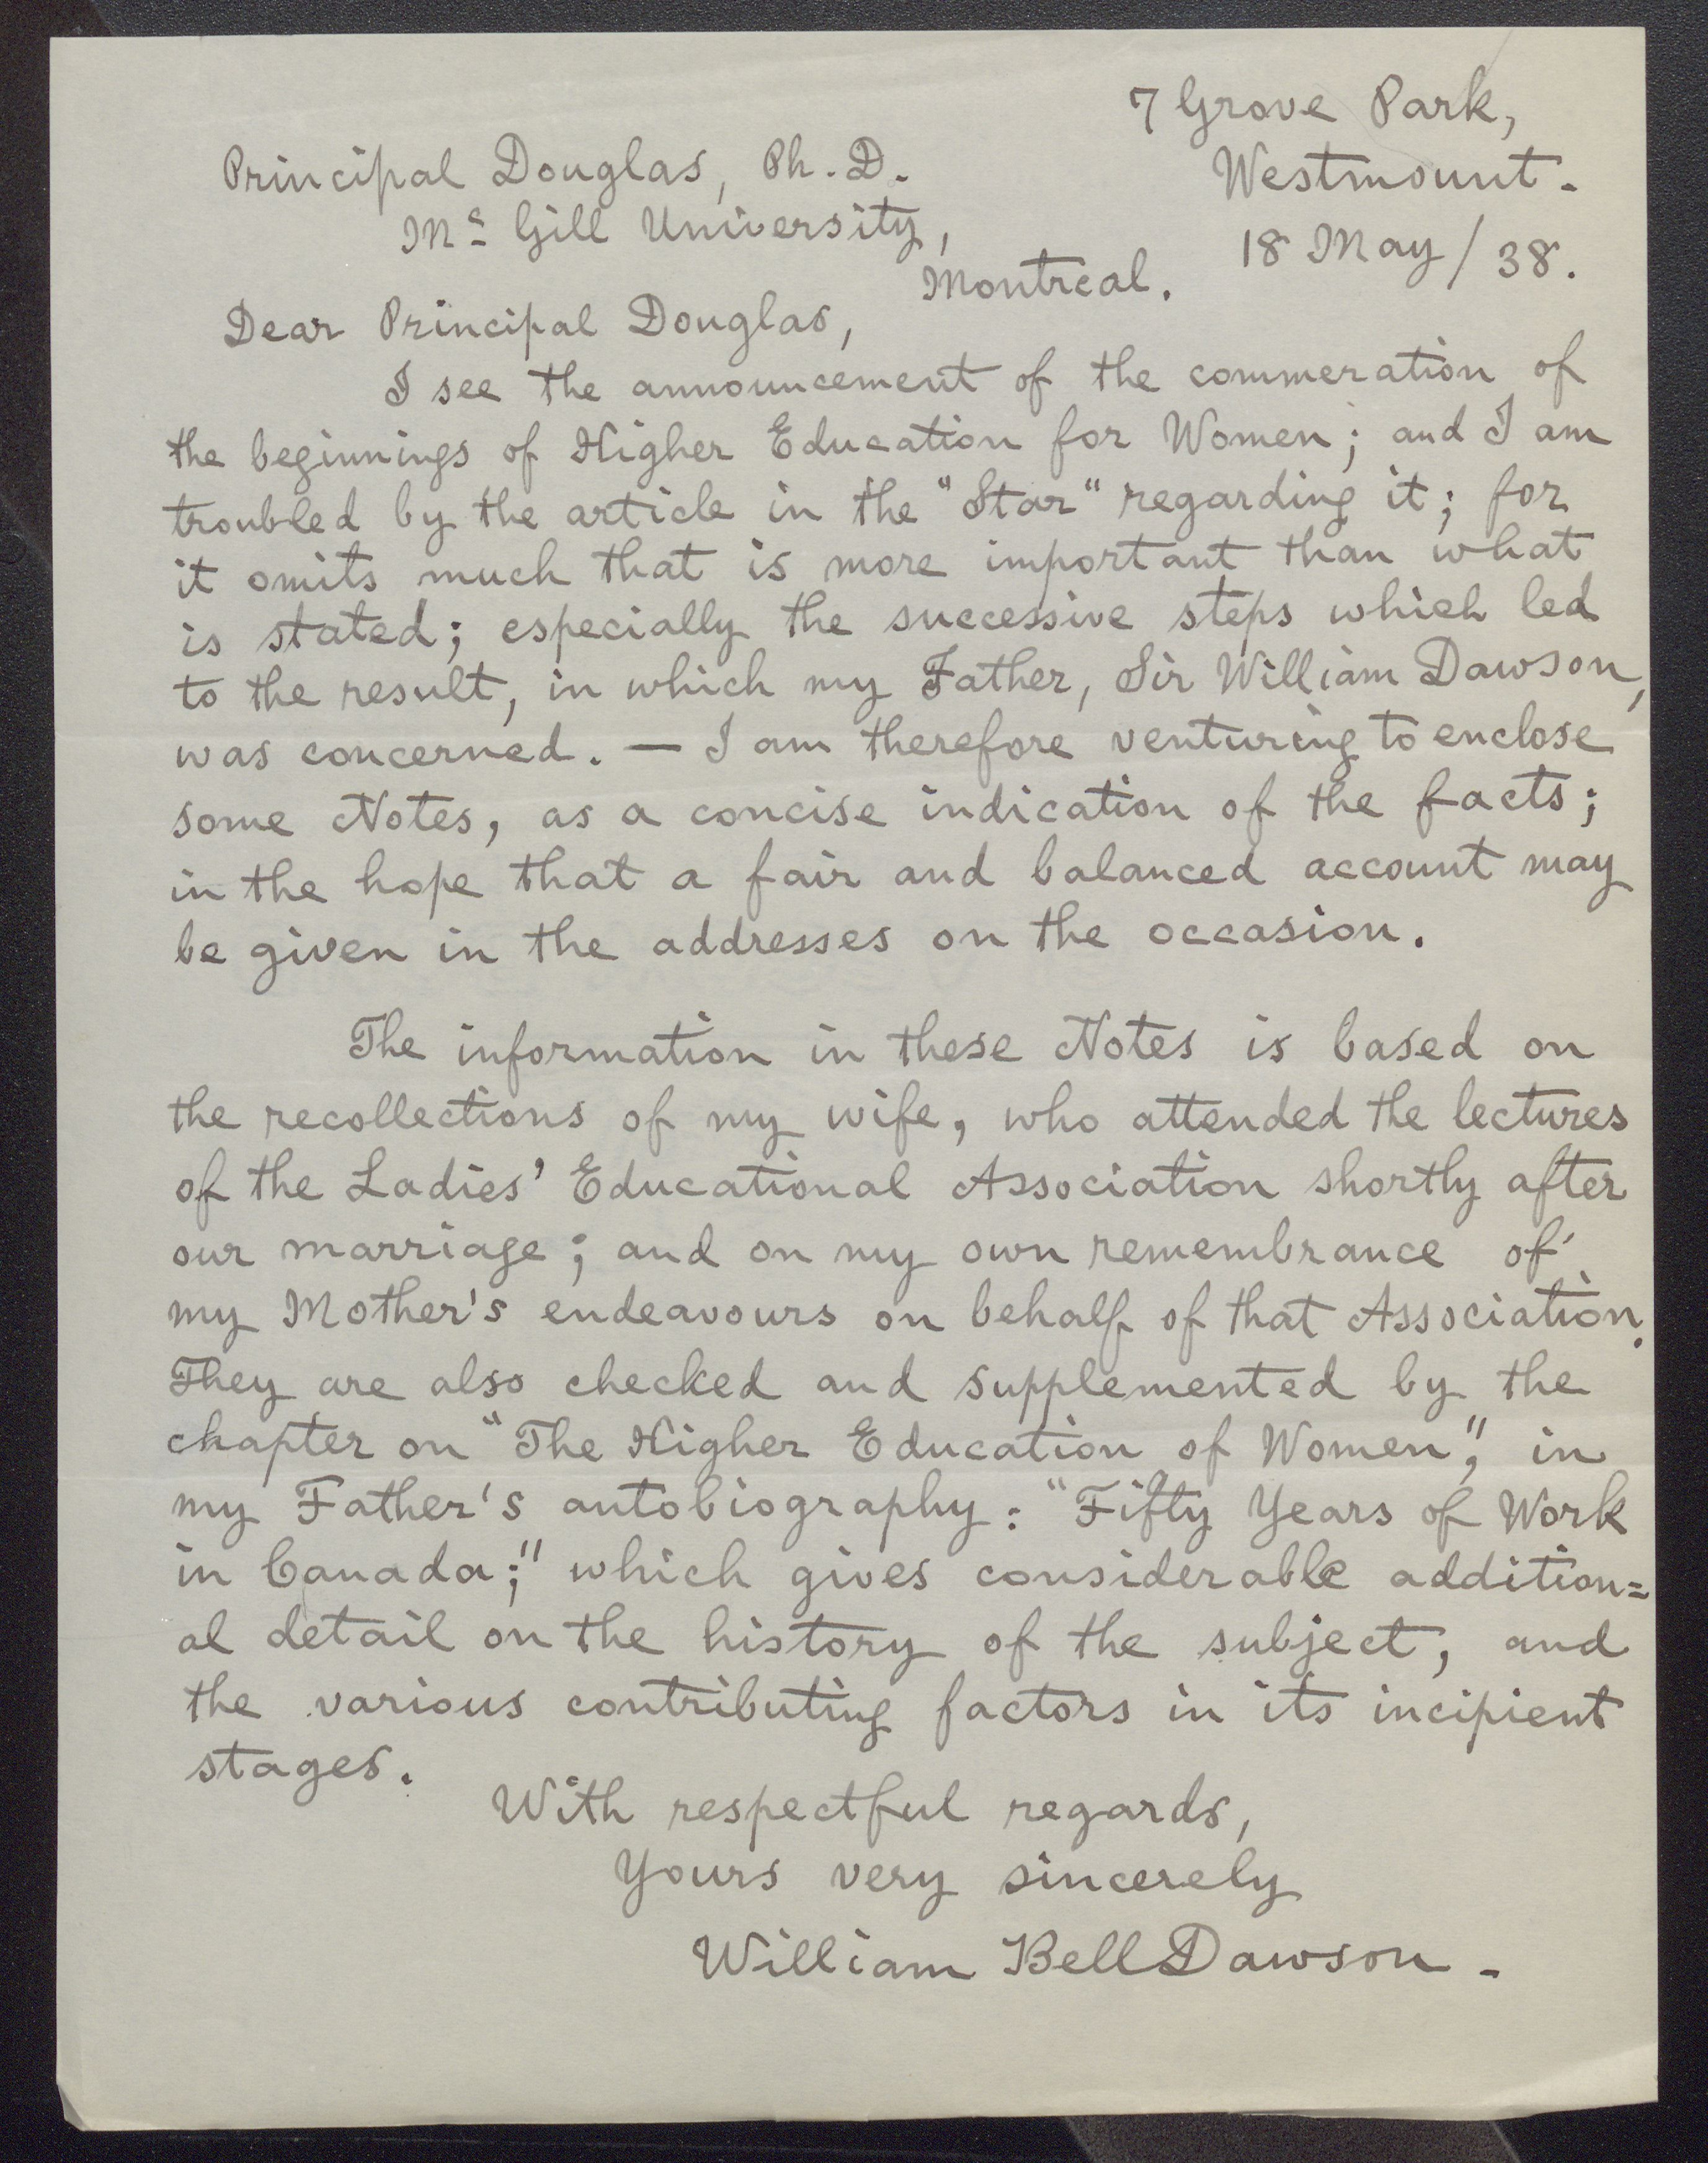 7 Grove Park,
Westmount.
18 May / 38.
Principal Douglas, Ph. D.
Mc Gill University,
Montreal.
Dear Principal Douglas,
I see the announcement of the commeration of
the beginnings of Higher Education for Women; and I am
troubled by the article in the "Star" regarding it; for
it omits much that is more important than what
is stated; especially the successive steps which led
to the result, in which my Father, Sir William Dawson,
was concerned. — I am therefore venturing to enclose
some Notes, as a concise indication of the facts;
in the hope that a fair and balanced account may
be given in the addresses on the occasion.
The information in these Notes is based on
the recollections of my wife, who attended the lectures
of the Ladies' Educational Association shortly after
our marriage; and on my own remembrance of
my Mother's endeavours on behalf of that Association.
They are also checked and supplemented by the
chapter on "The Higher Education of Women", in
my Father's autobiography: "Fifty Years of Work
in Canada;" which gives considerable addition=
al detail on the history of the subject, and
the various contributing factors in its incipient
stages.
With respectful regards,
Yours very sincerely
William Bell Dawson -